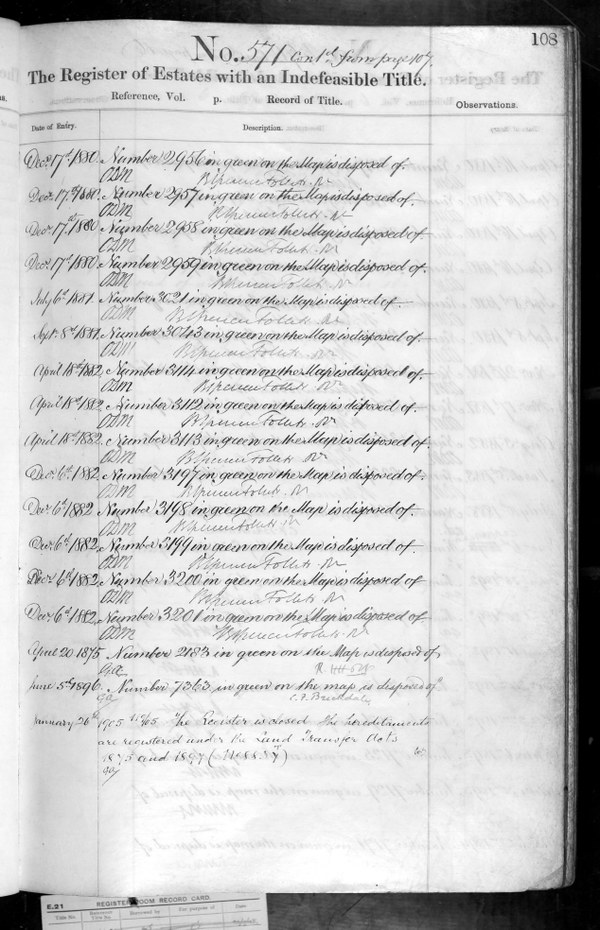 108
No. 571 Cont'd from page 107.
The Register of Estates with an Indefeasible Title.
Reference, Vol. p. Record of Title.
Observations.
Date of Entry. Description.
Decr. 17th 1880. Number 2956 in green on the Map is disposed of.
ODM B Spencer Follett. Rr
Decr. 17th 1880. Number 2957 in green on the Map is disposed of.
ODM B Spencer Follett. Rr
Decr. 17th 1880 Number 2958 in green on the Map is disposed of
ODM B Spencer Follett. Rr
Decr. 17th 1880. Number 2959 in green on the Map is disposed of.
ODM B Spencer Follett. Rr
July 6th 1881. Number 3021 in green on the Map is disposed of.
ODM B Spencer Follett. Rr
Sept. 8th 1881. Number 3043 in green on the Map is disposed of.
ODM B Spencer Follett. Rr
April 18th 1882. Number 3114 in green on the Map is disposed of.
ODM B Spencer Follett. Rr
April 18th 1882 Number 3112 in green on the Map is disposed of.
ODM B Spencer Follett. Rr
April 18th 1882 Number 3113 in green on the Map is disposed of.
ODM B Spencer Follett. Rr
Decr. 6th 1882 Number 3197 in green on the Map is disposed of.
ODM B Spencer Follett. Rr
Decr. 6th 1882 Number 3198 in green on the Map is disposed of.
ODM B Spencer Follett. Rr
Decr. 6th 1882. Number 3199 in green on the Map is disposed of
ODM B Spencer Follett. Rr
Decr. 6th 1882. Number 3200 in green on the Map is disposed of
ODM B Spencer Follett. Rr
Decr. 6th 1882. Number 3201 in green on the Map is disposed of
ODM B Spencer Follett. Rr
April 20 1875 Number 2183 in green on the Map is disposed of
June 5th 1896. Number 7363 in green on the map is disposed of
January 26th 1905 The Register is closed the hereditaments
are registered under the Land Transfer Acts
1875 and 1897
E.21 REGISTER ROOM RECORD CARD.
Title No.